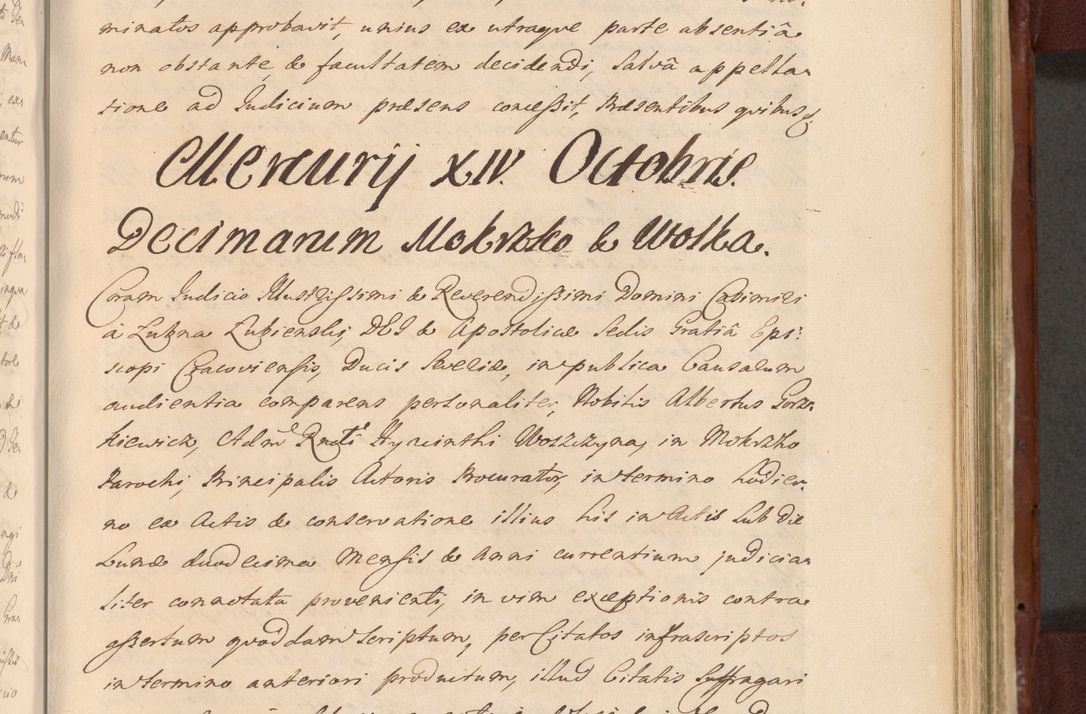 minatos approbavit, unius ex utraque parte absentiâ
non obstante, & facultatem decidendi, Salvâ appella-
tione ad Iudicium præsens concessit, Præsentibus quibus
Mercurij XIV. Octobris.
Decimarum Mokrzko & Wolka.
Coram Iudicio Illustrissimi & Reverendissimi Domini Casimiri
à Lubna Lubienski, DEI & Apostolicæ Sedis Gratiâ Epi:
scopi Cracoviensis, Ducis Severiæ, in publica Causarum
audientia comparens personaliter, Nobilis Albertus Gorz-
kiewicz, Adm Rndi Hyacinthi Woszczyna, in Mokrzko
Parochi, Principalis Actoris Procurator, in termino hodier-
no ex Actis & conservatione illius his in Actis Sub die
Lunæ duodecima Mensis & Anni currentium judicia-
liter connotata provenienti, in vim exceptionis contra
assertum quoddam Scriptum, per Citatos infrascriptos
in termino anteriori productum, illud Citatis Suffragari